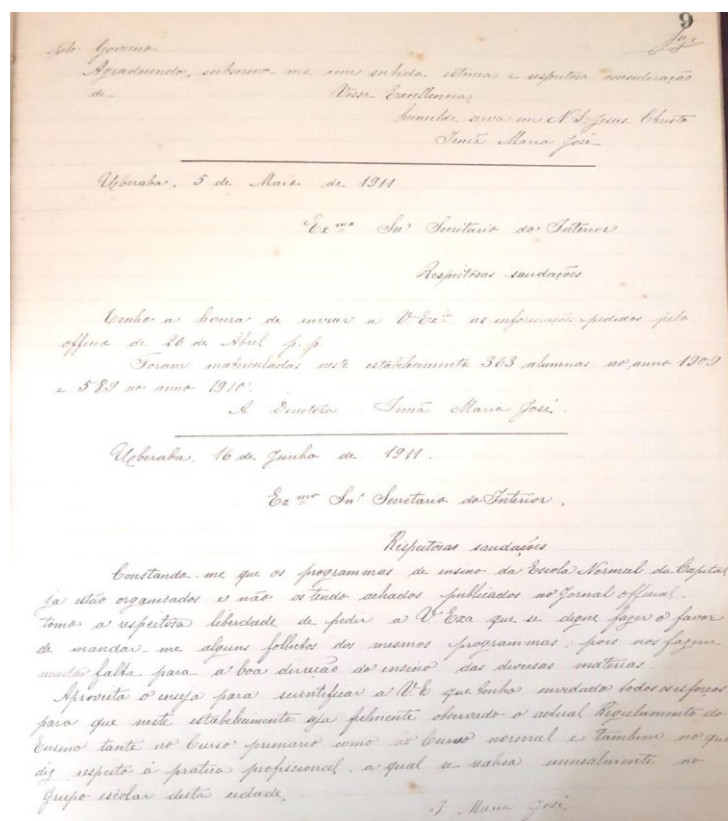 9
pelo Governo
Agradecendo, subscrevo-me com subida estima e respeitosa consideração
de Vossa Excellencia,
humilde serva em N. S. Jesus Christo
Irmã Maria José
Uberaba, 5 de Maio de 1911
Ex.mo Snr. Secretario do Interior
Respeitosas saudações
Tenho a honra de enviar a V. Ex.cia as informações pedidas pelo
officio de 26 de Abril p. p.
Foram matriculadas neste estabelecimento 363 alumnas no anno 1909
e 589 no anno 1910.
A Directora Irmã Maria José.
Uberaba, 16 de Junho de 1911.
Ex.mo Snr. Secretario do Interior.
Respeitosas saudações
Constando-me que os programmas de ensino da Escola Normal da Capital
ja estão organisados e não os tendo achados publicados no Jornal official,
tomo a respeitosa liberdade de pedir a V Exa que se digne fazer o favor
de mandar-me alguns folhetos dos mesmos programmas; pois nos fazem
muita falta para a boa direcção do ensino das diversas materias.
Aproveito o ensejo para scientificar a V E que tenho envidado todos os esforços
para que neste estabelecimento seja fielmente observado o actual Regulamento do
Ensino tanto no Curso primario como no Curso normal e tambem no que
diz respeito à pratica profissional, a qual se realisa mensalmente no
Grupo escolar desta cidade.
I. Maria José